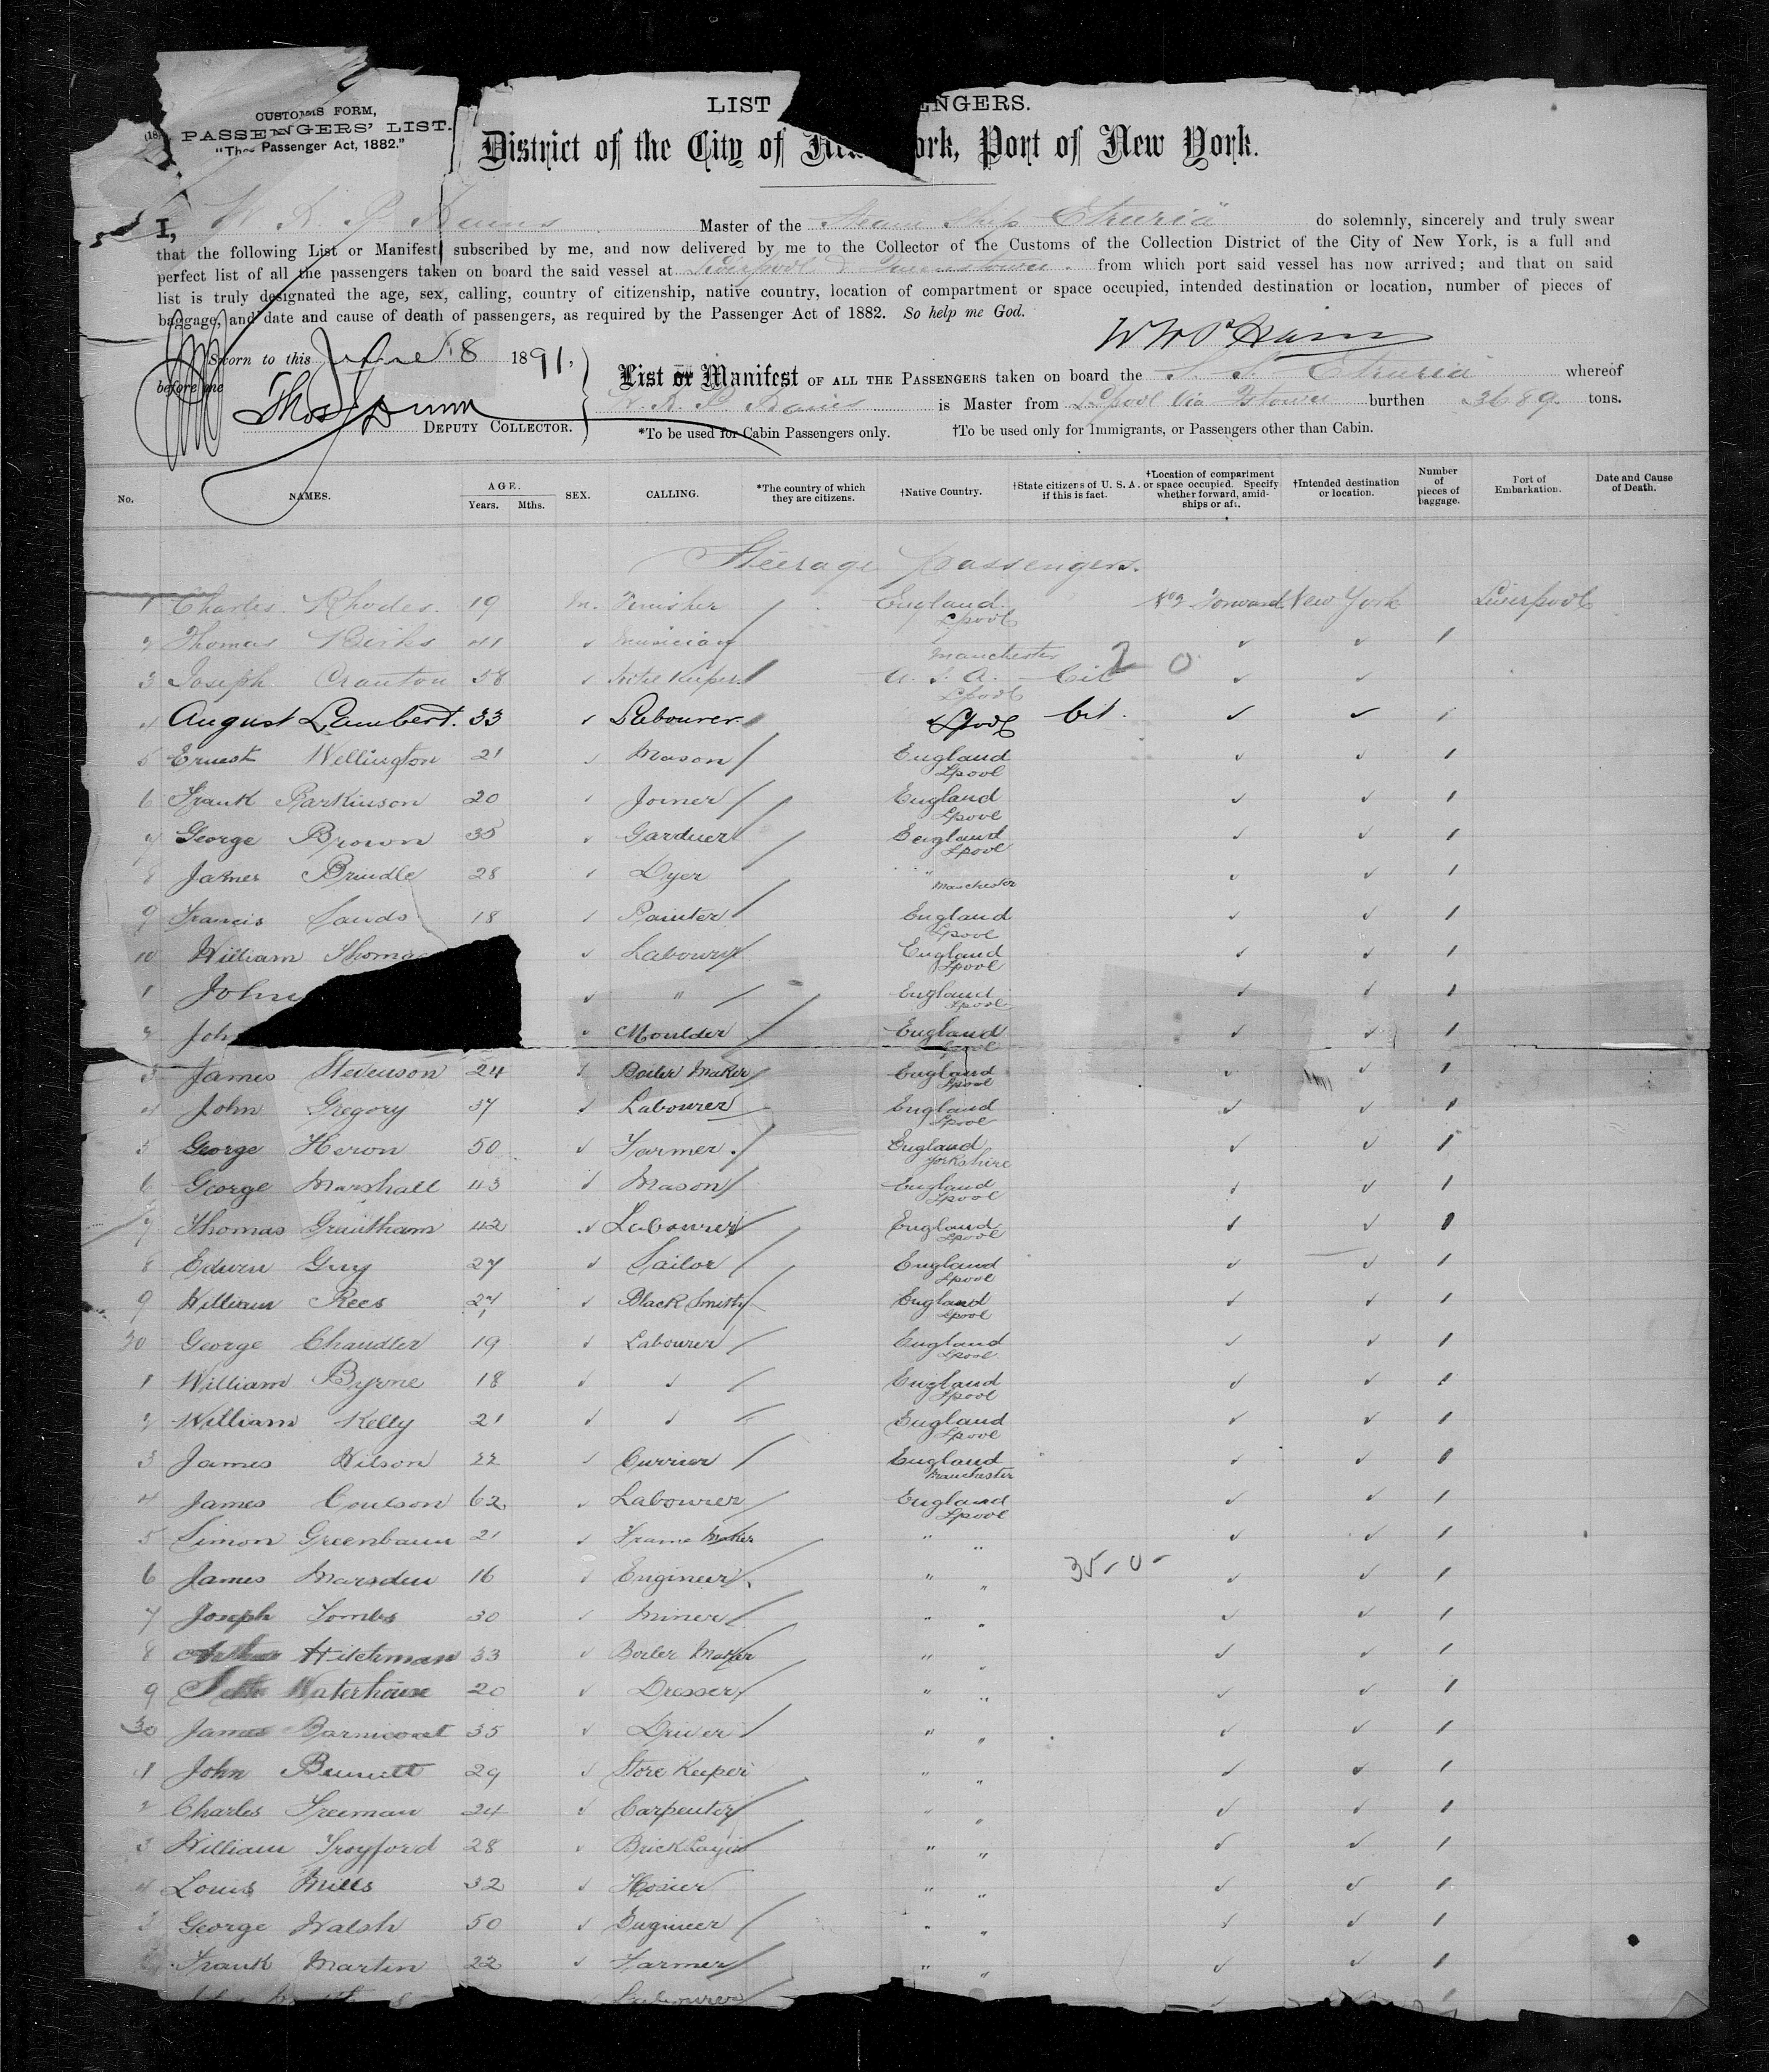 CUSTOMS FORM,
PASSENGERS' LIST.
"The Passenger Act, 1882."
LIST ENGERS.
District of the City of New York, Port of New York.
I, Master of the Steam Ship Etruria do solemnly, sincerely and truly swear
that the following List or Manifest subscribed by me, and now delivered by me to the Collector of the Customs of the Collection District of the City of New York, is a full and
perfect list of all the passengers taken on board the said vessel at Liverpool & Queenstown. from which port said vessel has now arrived; and that on said
list is truly designated the age, sex, calling, country of citizenship, native country, location of compartment or space occupied, intended destination or location, number of pieces of
baggage, and date and cause of death of passengers, as required by the Passenger Act of 1882. So help me God.
Sworn to this June 8 1891,
before me
DEPUTY COLLECTOR.
List or Manifest OF ALL THE PASSENGERS taken on board the S. S. Etruria whereof
is Master from LPool Via Qstown burthen 3689 tons.
*To be used for Cabin Passengers only. †To be used only for Immigrants, or Passengers other than Cabin.
No. NAMES. AGE. Years. Mths. SEX. CALLING. *The country of which they are citizens. †Native Country. †State citizens of U. S. A. if this is fact. †Location of compartment or space occupied. Specify whether forward, amidships or aft. †Intended destination or location. Number of pieces of baggage. Port of Embarkation. Date and Cause of Death.
Steerage passengers.
1 Charles Rhodes. 19 m. England Lpool Forward New York Liverpool
2 Thomas 41 ✓ musician / Manchester ✓ ✓ 1
3 Joseph Cranton 58 ✓ / U. S. A. Lpool Cit 2 0 ✓ ✓
4 August Lambert. 33 ✓ Labourer / Lpool Cit. ✓ ✓ 1
5 Ernest Wellington 21 ✓ Mason / England Lpool ✓ ✓ 1
6 Frank Parkinson 20 ✓ Joiner / England Lpool ✓ ✓ 1
7 George Brown 35 ✓ Gardner / England Lpool ✓ ✓ 1
8 James Brindle 28 ✓ Dyer / " Manchester ✓ ✓ 1
9 Francis Sands 18 ✓ Painter / England Lpool ✓ ✓ 1
10 William Thomas ✓ Labourer / England Lpool ✓ ✓ 1
1 John ✓ " / England Lpool ✓ ✓ 1
2 Joh ✓ Moulder / England Lpool ✓ ✓ 1
3 James Stevenson 24 ✓ Boiler Maker / England Lpool ✓ ✓ 1
4 John Gregory 37 ✓ Labourer / England Lpool ✓ ✓ 1
5 George Heron 50 ✓ Farmer. / England Yorkshire ✓ ✓ 1
6 George Marshall 43 ✓ Mason / England Lpool ✓ ✓ 1
7 Thomas Grantham 42 ✓ Labourer / England Lpool ✓ ✓ 1
8 Edwin Guy 27 ✓ Sailor / England Lpool ✓ ✓ 1
9 William Rees 27 ✓ Black Smith / England Lpool ✓ ✓ 1
20 George Chandler 19 ✓ Labourer / England Lpool ✓ ✓ 1
1 William Byrne 18 ✓ ✓ / England Lpool ✓ ✓ 1
2 William Kelly 21 ✓ ✓ / England Lpool ✓ ✓ 1
3 James Wilson 22 ✓ Currier / England Manchester ✓ ✓ 1
4 James Coulson 62 ✓ Labourer / England Lpool ✓ ✓ 1
5 Simon Greenbaum 21 ✓ Frame Maker " " ✓ ✓ 1
6 James Marsden 16 ✓ Engineer / " " 35-0- ✓ ✓ 1
7 Joseph Tombs 30 ✓ Miner / " " ✓ ✓ 1
8 Arthur Hitchman 33 ✓ Boiler Maker " " ✓ ✓ 1
9 Seth Waterhouse 20 ✓ Dresser / " " ✓ ✓ 1
30 James Barnicoat 35 ✓ Driver / " " ✓ ✓ 1
1 John Bennett 29 ✓ Store Keeper " " ✓ ✓ 1
2 Charles Freeman 24 ✓ Carpenter / " " ✓ ✓ 1
3 William 28 ✓ Brick Layer " " ✓ ✓ 1
4 Louis Mills 32 ✓ Hosier " " ✓ ✓ 1
5 George Walsh 50 ✓ Engineer / " " ✓ ✓ 1
Frank Martin 22 ✓ Farmer / " " ✓ ✓ 1
Labourer